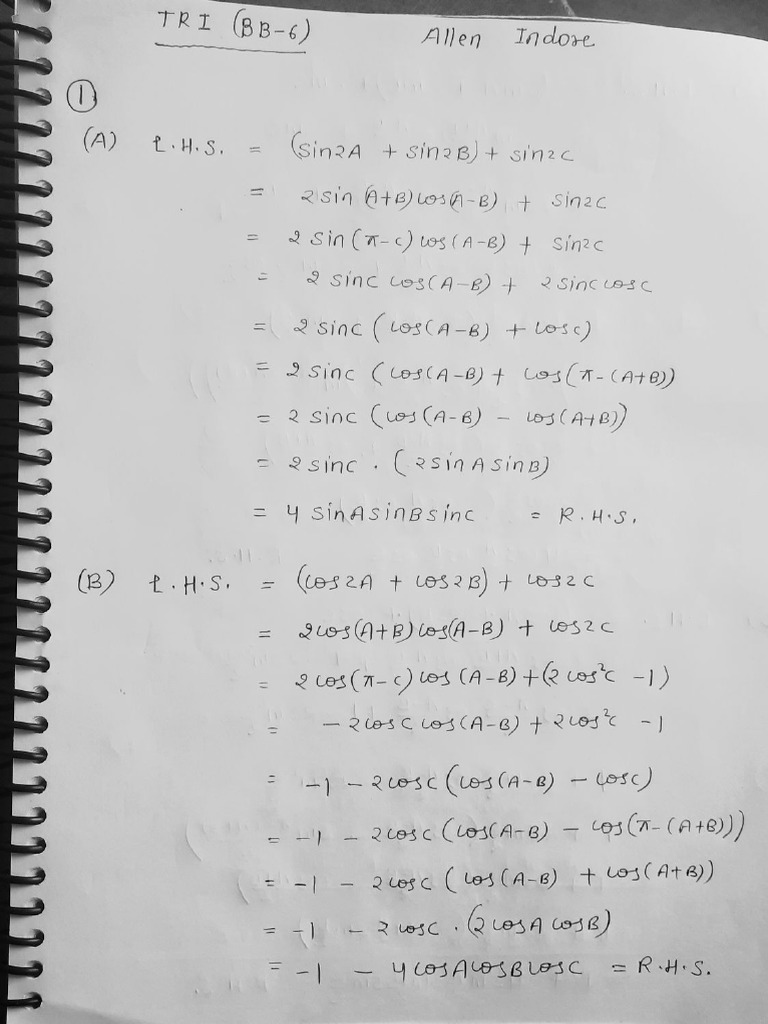 TRI (BB-6) Allen Indore
①
(A) L.H.S. = (sin2A + sin2B) + sin2C
= 2 sin (A+B) cos(A-B) + sin2C
= 2 sin (π-C) cos (A-B) + sin2C
= 2 sinC cos(A-B) + 2 sinC cosC
= 2 sinC (cos(A-B) + cosC)
= 2 sinC (cos(A-B) + cos(π-(A+B))
= 2 sinC (cos(A-B) - cos(A+B))
= 2 sinC . (2 sinA sinB)
= 4 sinA sinB sinC = R.H.S.
(B) L.H.S. = (cos2A + cos2B) + cos2C
= 2cos(A+B) cos(A-B) + cos2C
= 2 cos(π-C) cos (A-B) + (2 cos²C - 1)
= - 2cosC cos(A-B) + 2cos²C - 1
= -1 - 2cosC (cos(A-B) - cosC)
= -1 - 2cosC (cos(A-B) - cos(π-(A+B)))
= -1 - 2cosC (cos(A-B) + cos(A+B))
= -1 - 2cosC . (2cosA cosB)
= -1 - 4cosA cosB cosC = R.H.S.